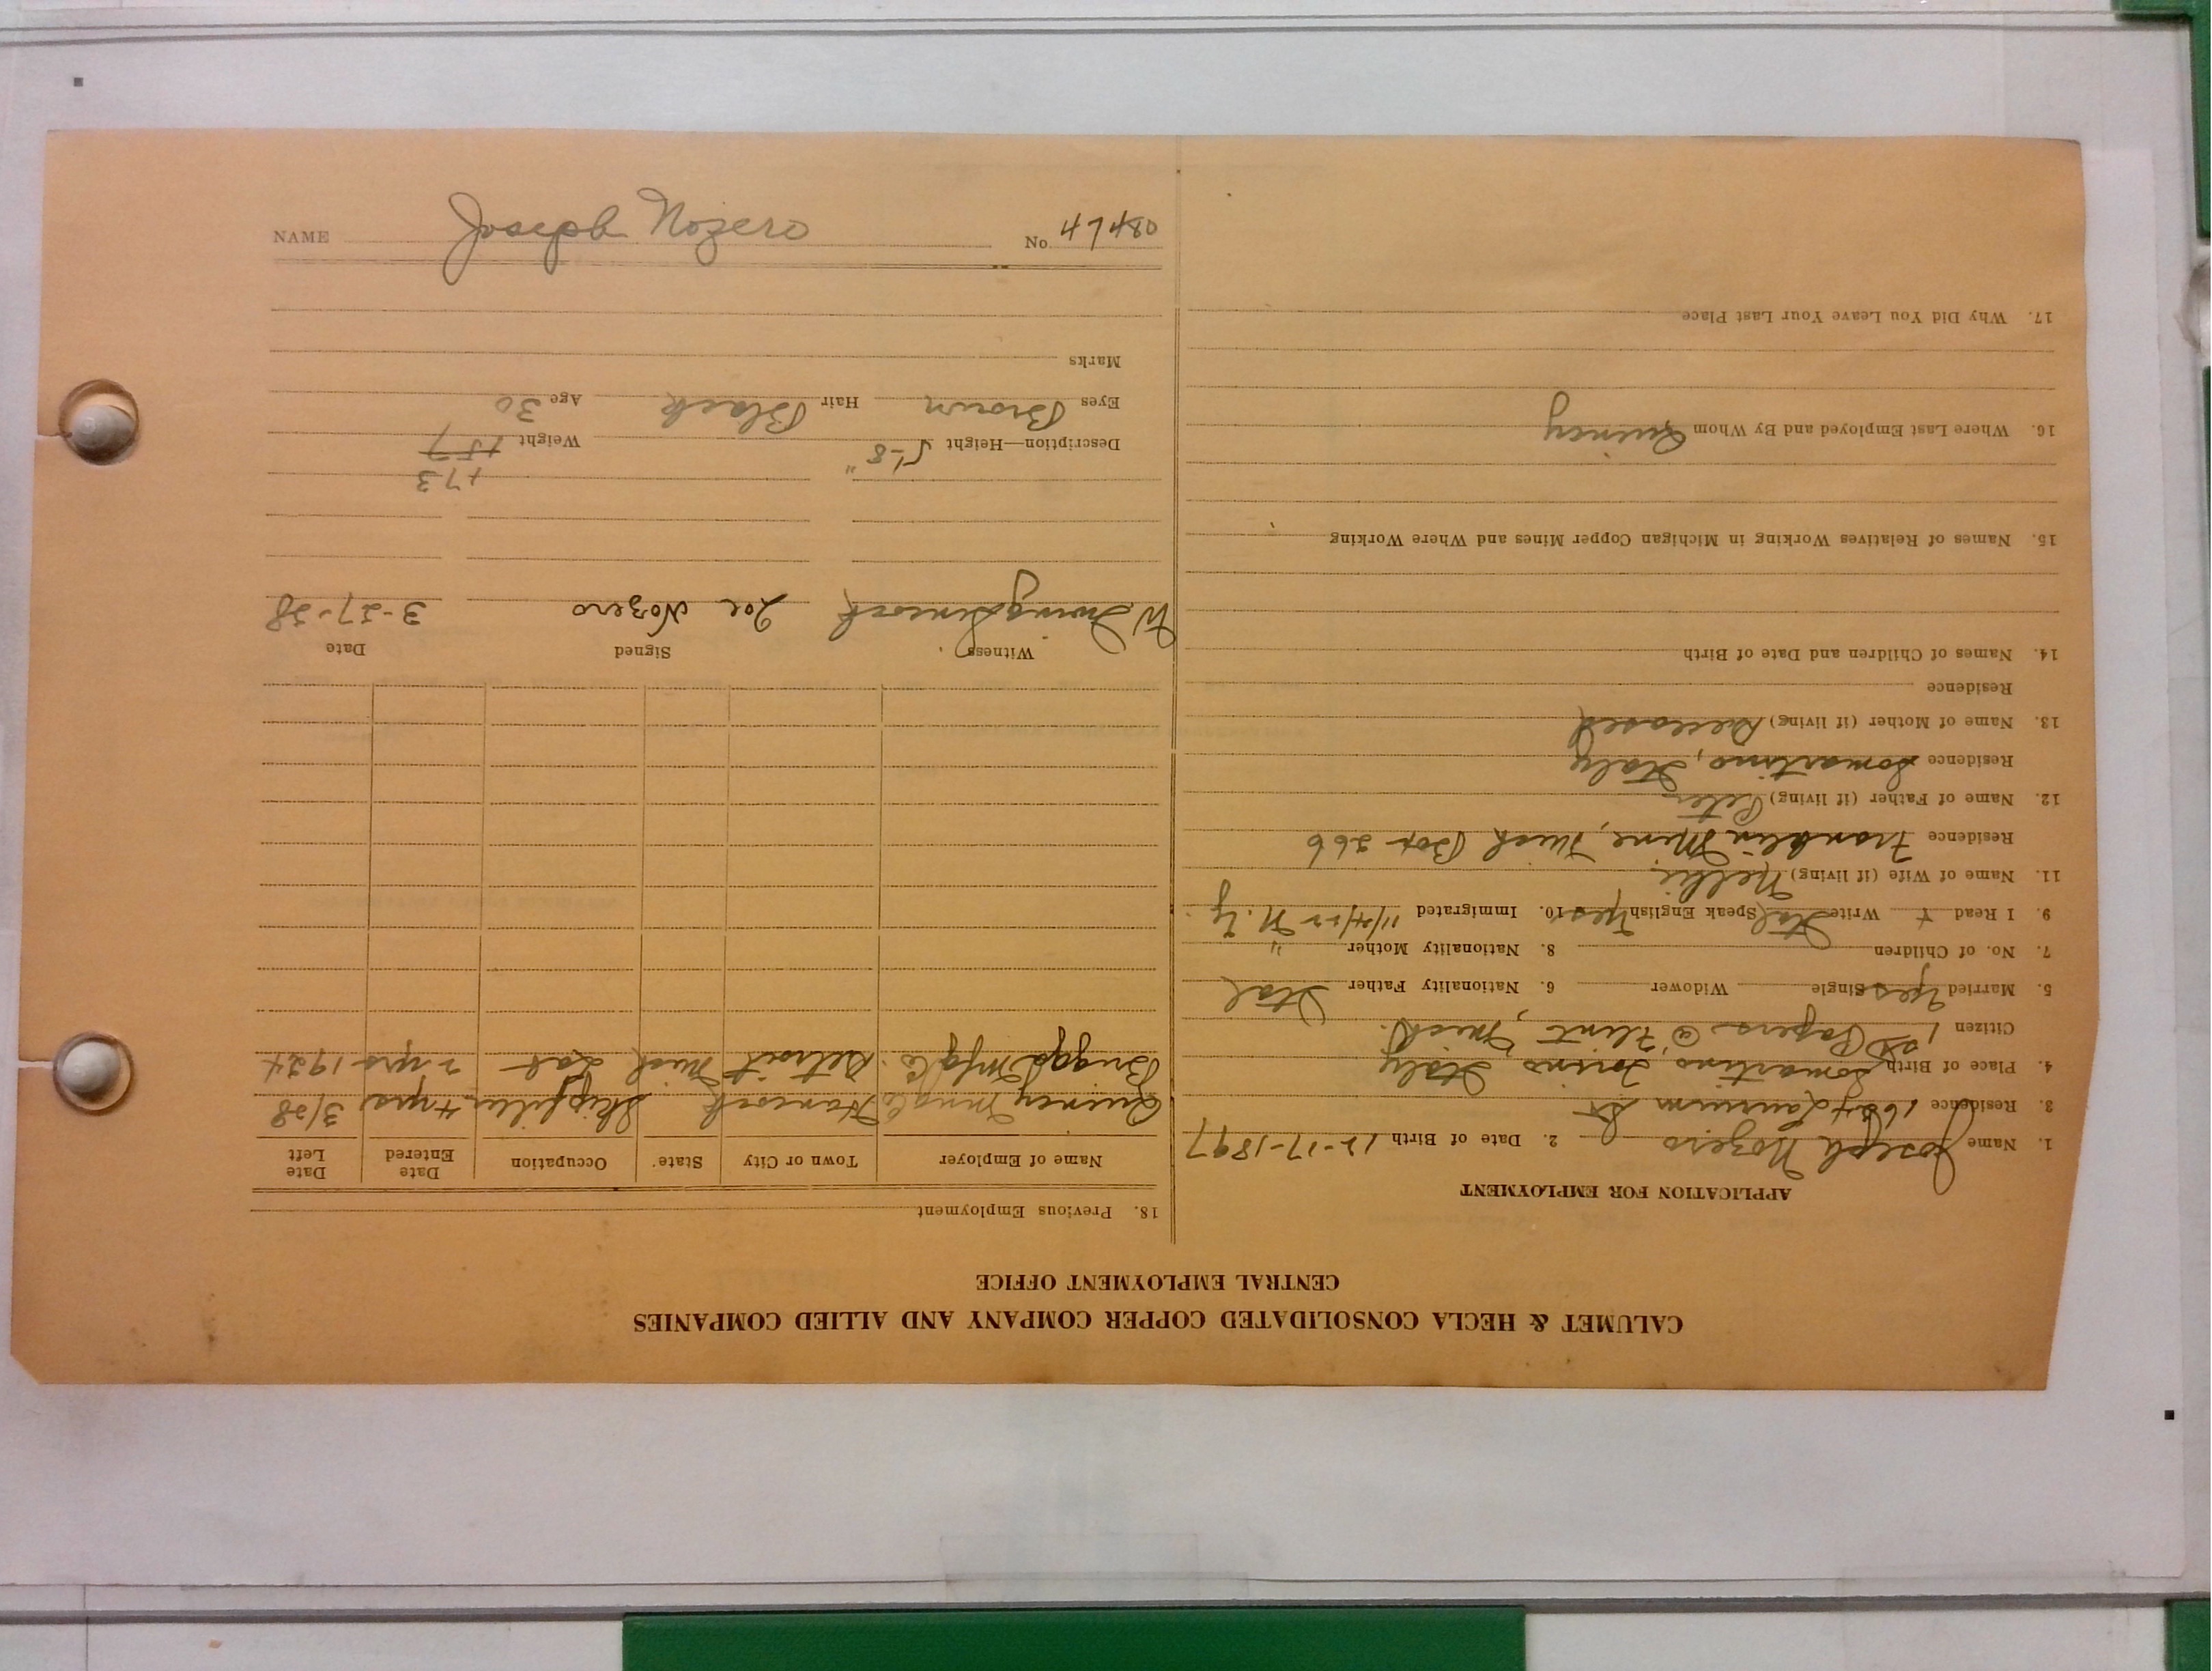 CALUMET & HECLA CONSOLIDATED COPPER COMPANY AND ALLIED COMPANIES
CENTRAL EMPLOYMENT OFFICE
APPLICATION FOR EMPLOYMENT
1. Name Joseph Nozero 2. Date of Birth 12-17-1897
3. Residence 1604 Laurium St
4. Place of Birth Somartino Torino Italy
Citizen 1st Papers @ Flint, Mich.
5. Married Yes Single Widower 6. Nationality Father Ital
7. No. of Children 8. Nationality Mother "
9. I Read + Write Ital Speak English Yes 10. Immigrated 11/24/22 N.Y.
11. Name of Wife (if living) Nellie
Residence Franklin Mine, Mich Box 366
12. Name of Father (if living) Peter
Residence Somartino, Italy
13. Name of Mother (if living) Deceased
Residence
14. Names of Children and Date of Birth
15. Names of Relatives Working in Michigan Copper Mines and Where Working
16. Where Last Employed and By Whom Quincy
17. Why Did You Leave Your Last Place
18. Previous Employment
Name of Employer Town or City State Occupation Date Entered Date Left
Quincy Mng Co Hancock Skipfiller 4 yrs 3/28
Briggs Mfg Co. Detroit Mich Lab 2 yrs 1924
Witness Signed Date
W. Joe Nozero 3-27-28
173
Description—Height 5'-8" Weight 157
Eyes Brown Hair Black Age 30
Marks
NAME Joseph Nozero No. 47480